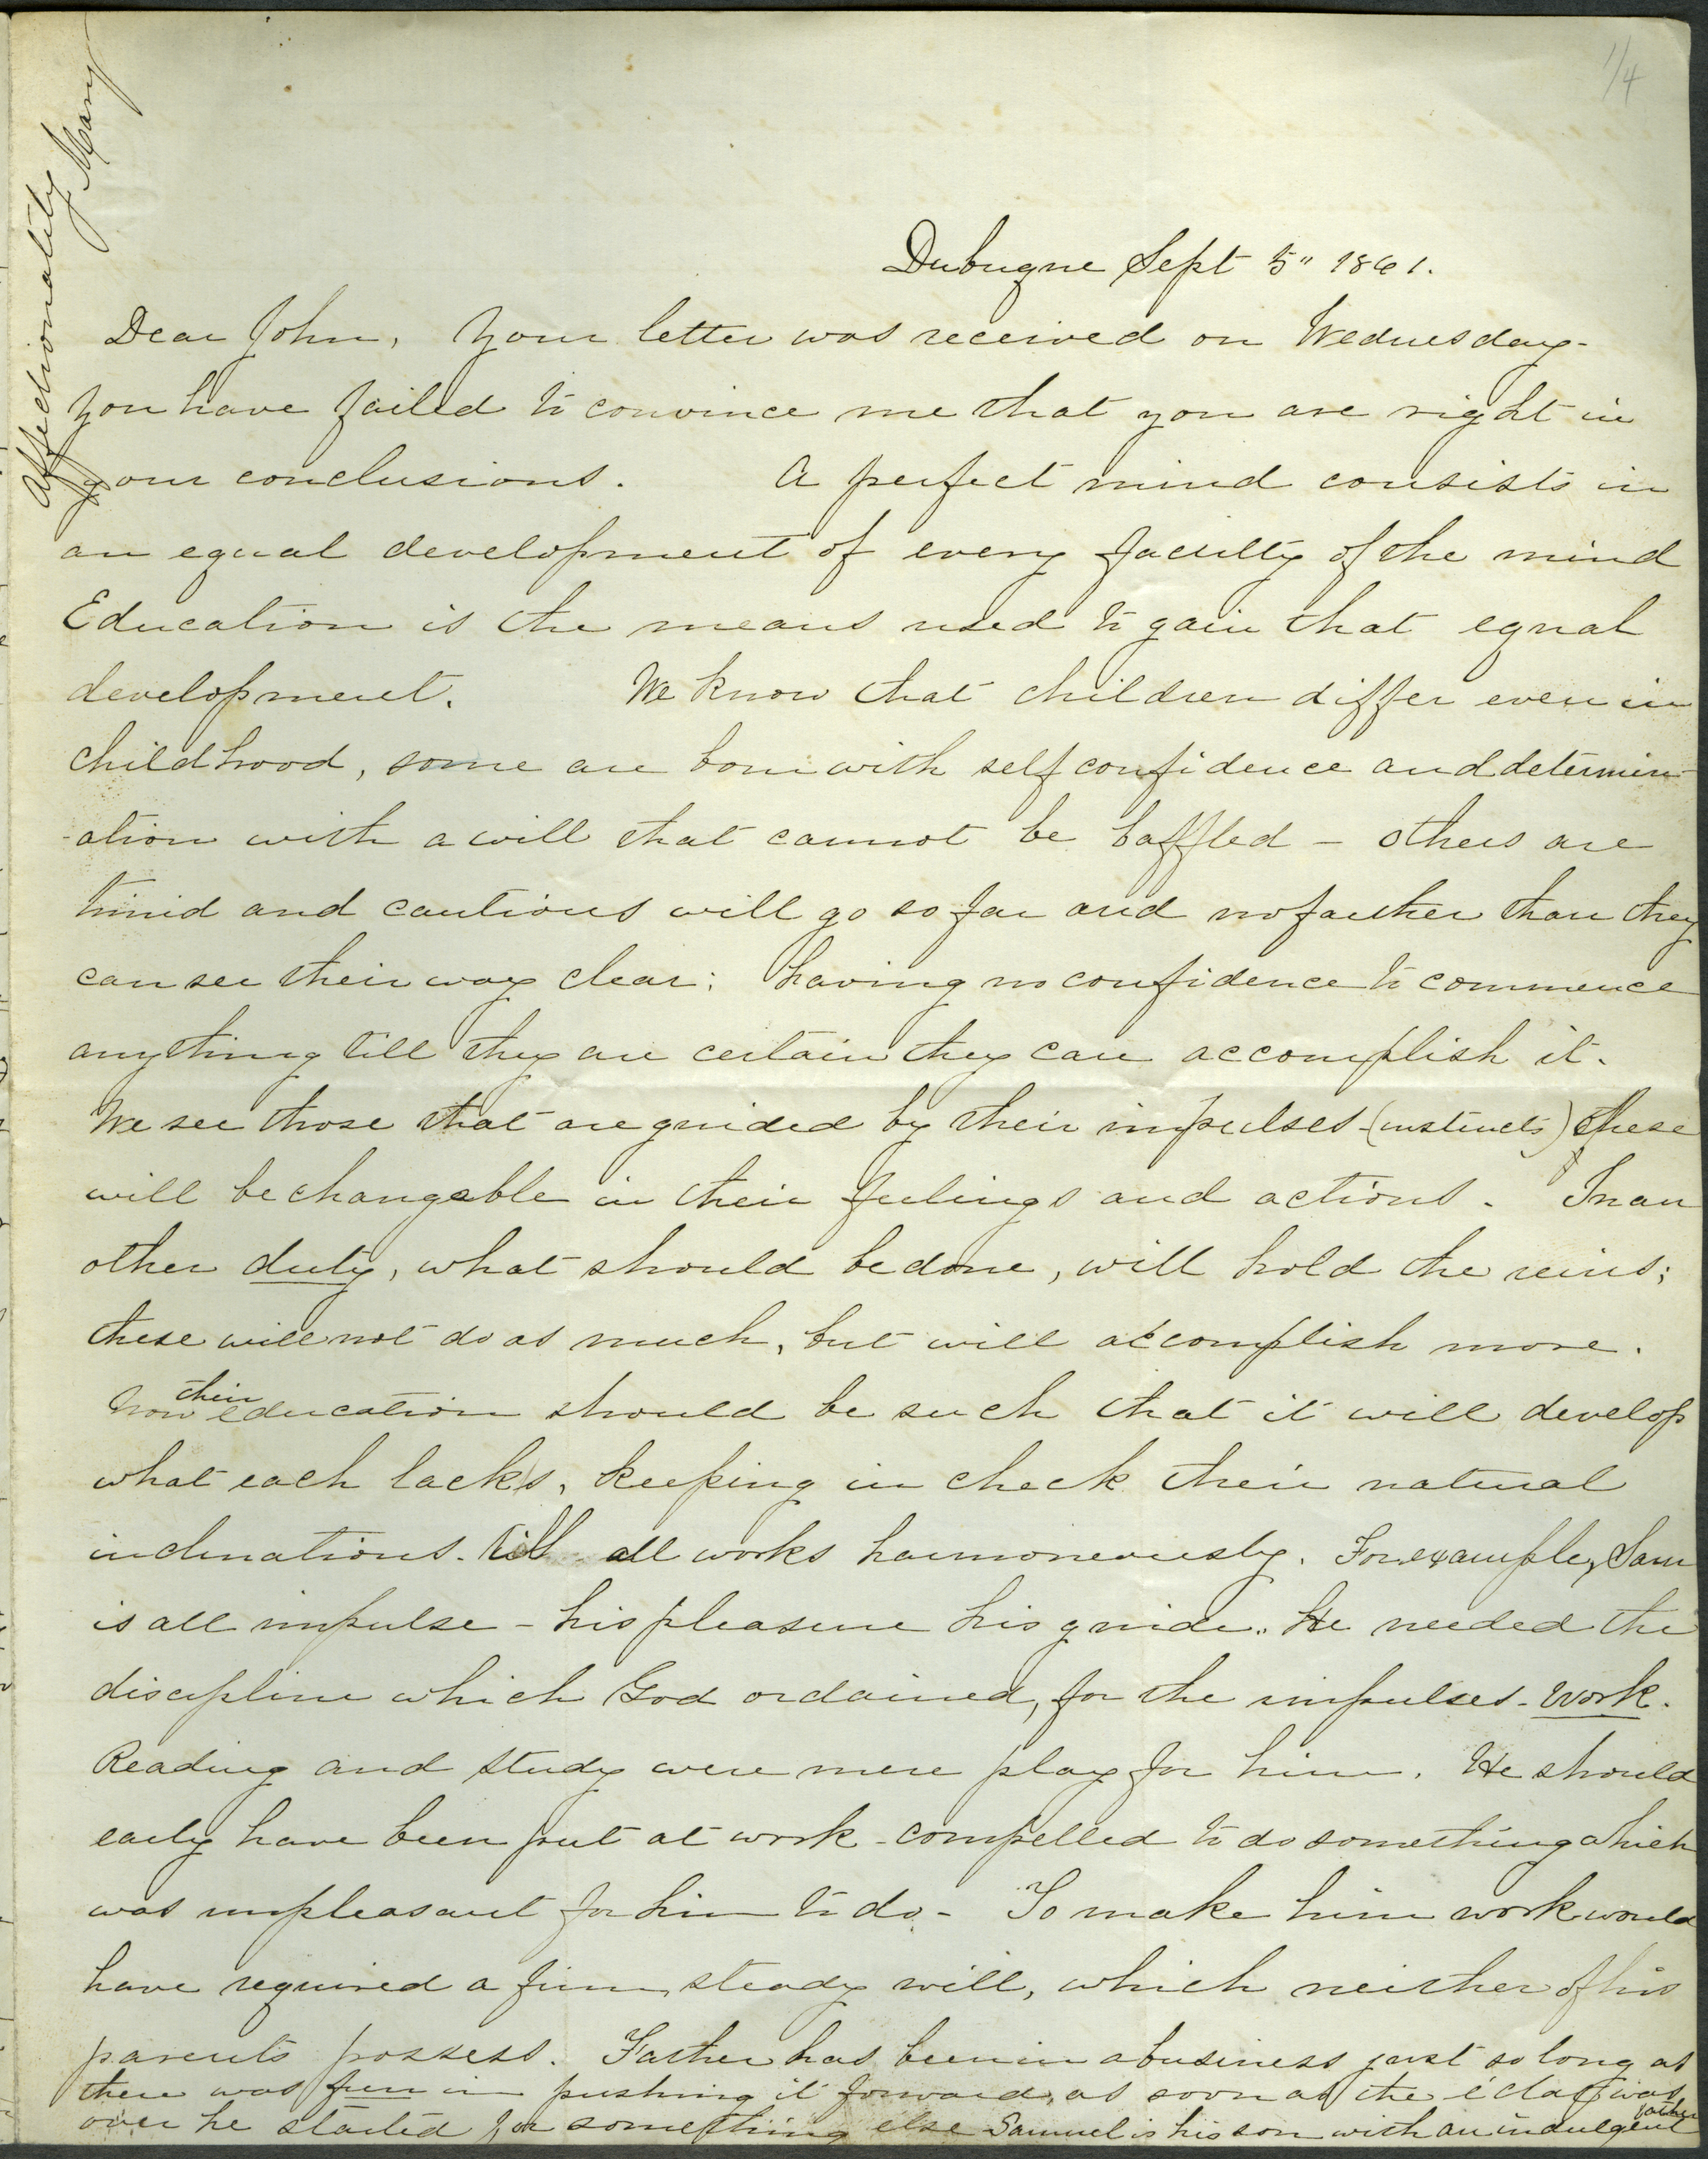 1/4
Affectionatily
Mary
Dubuque Sept 5" 1861.
Dear John, Your letter was received on Wednesday-
You have failed to convince me that you are right in
your conclusions. A perfect mind consists in
an equal development of every faculty of the mind
Education is the means used to gain that equal
development. We know that children differ even in
childhood, some are born with self confidence and determin-
-ation with a will that cannot be baffled - others are
timid and cautious will go so far and no farther than they
can see their way clear; having no confidence to commence
anything till they are certain they can accomplish it.
We see those that are guided by their impulses (instincts) these
will be changable in their feelings and actions. In an
other duty, what should be done, will hold the reins;
these will not do as much, but will accomplish more.
Now their education should be such that it will develop
what each lacks, keeping in check their natural
inclinations. till all works harmoneously. For example, Sam
is all impulse - his pleasure his guide. He needed the
discipline which God ordained, for the impulses - work.
Reading and study were mere play for him. He should
early have been put at work - compelled to do something which
was unpleasant for him to do - To make him work would
have required a firm, steady will, which neither of his
parents possess. Father has been in a business just so long as
there was fun in pushing it forward, as soon as the éclat was
over he started for something else Samuel is his son with an indulgent father